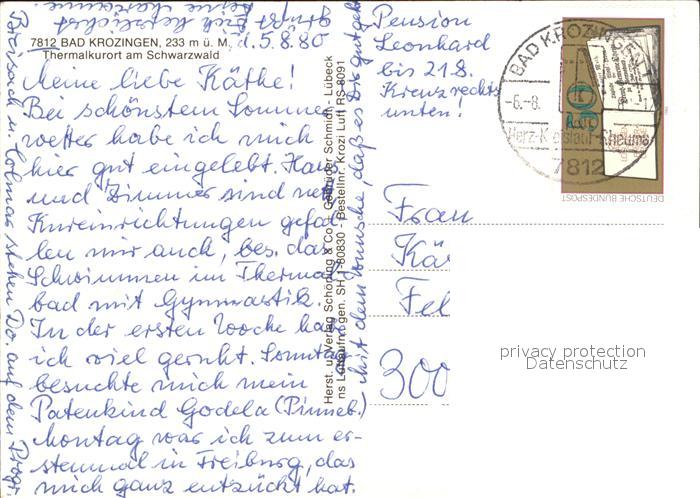 7812 BAD KROZINGEN, 233 m ü. M.
Thermalkurort am Schwarzwald
d. 5.8.80
Meine liebe Käthe!
Bei schönstem Sommer
wetter habe ich mich
hier gut eingelebt. Haus
und Zimmer sind nett
Kureinrichtungen gefal
len mir auch, bes. das
Schwimmen im Thermal
bad mit Gymnastik.
In der ersten Woche hab
ich viel geruht. Sonntag
besuchte mich mein
Patenkind Godela (Pinneb.)
Montag war ich zum er-
stenmal in Freiburg, das
mich ganz entzückt hat.
Breisach u. Colmar stehen Do. auf dem Progr
mit dem Wunsche, daß es Dir gut geht
grüßt Dich herzlichst
Deine
Pension
Leonhard
bis 21.8.
Kreuz rechts
unten!
Herst. u. Verlag Schöning & Co + Gebrüder Schmidt - Lübeck
ns Luftaufnogen. SH 1-80830 - Bestellnr. Krozi Luft RS 8091
BAD KROZINGEN
-6.-8.
Herz-Kreislauf-Rheuma
7812
50
DEUTSCHE BUNDESPOST
Frau
Kä
Fel
300
privacy protection
Datenschutz